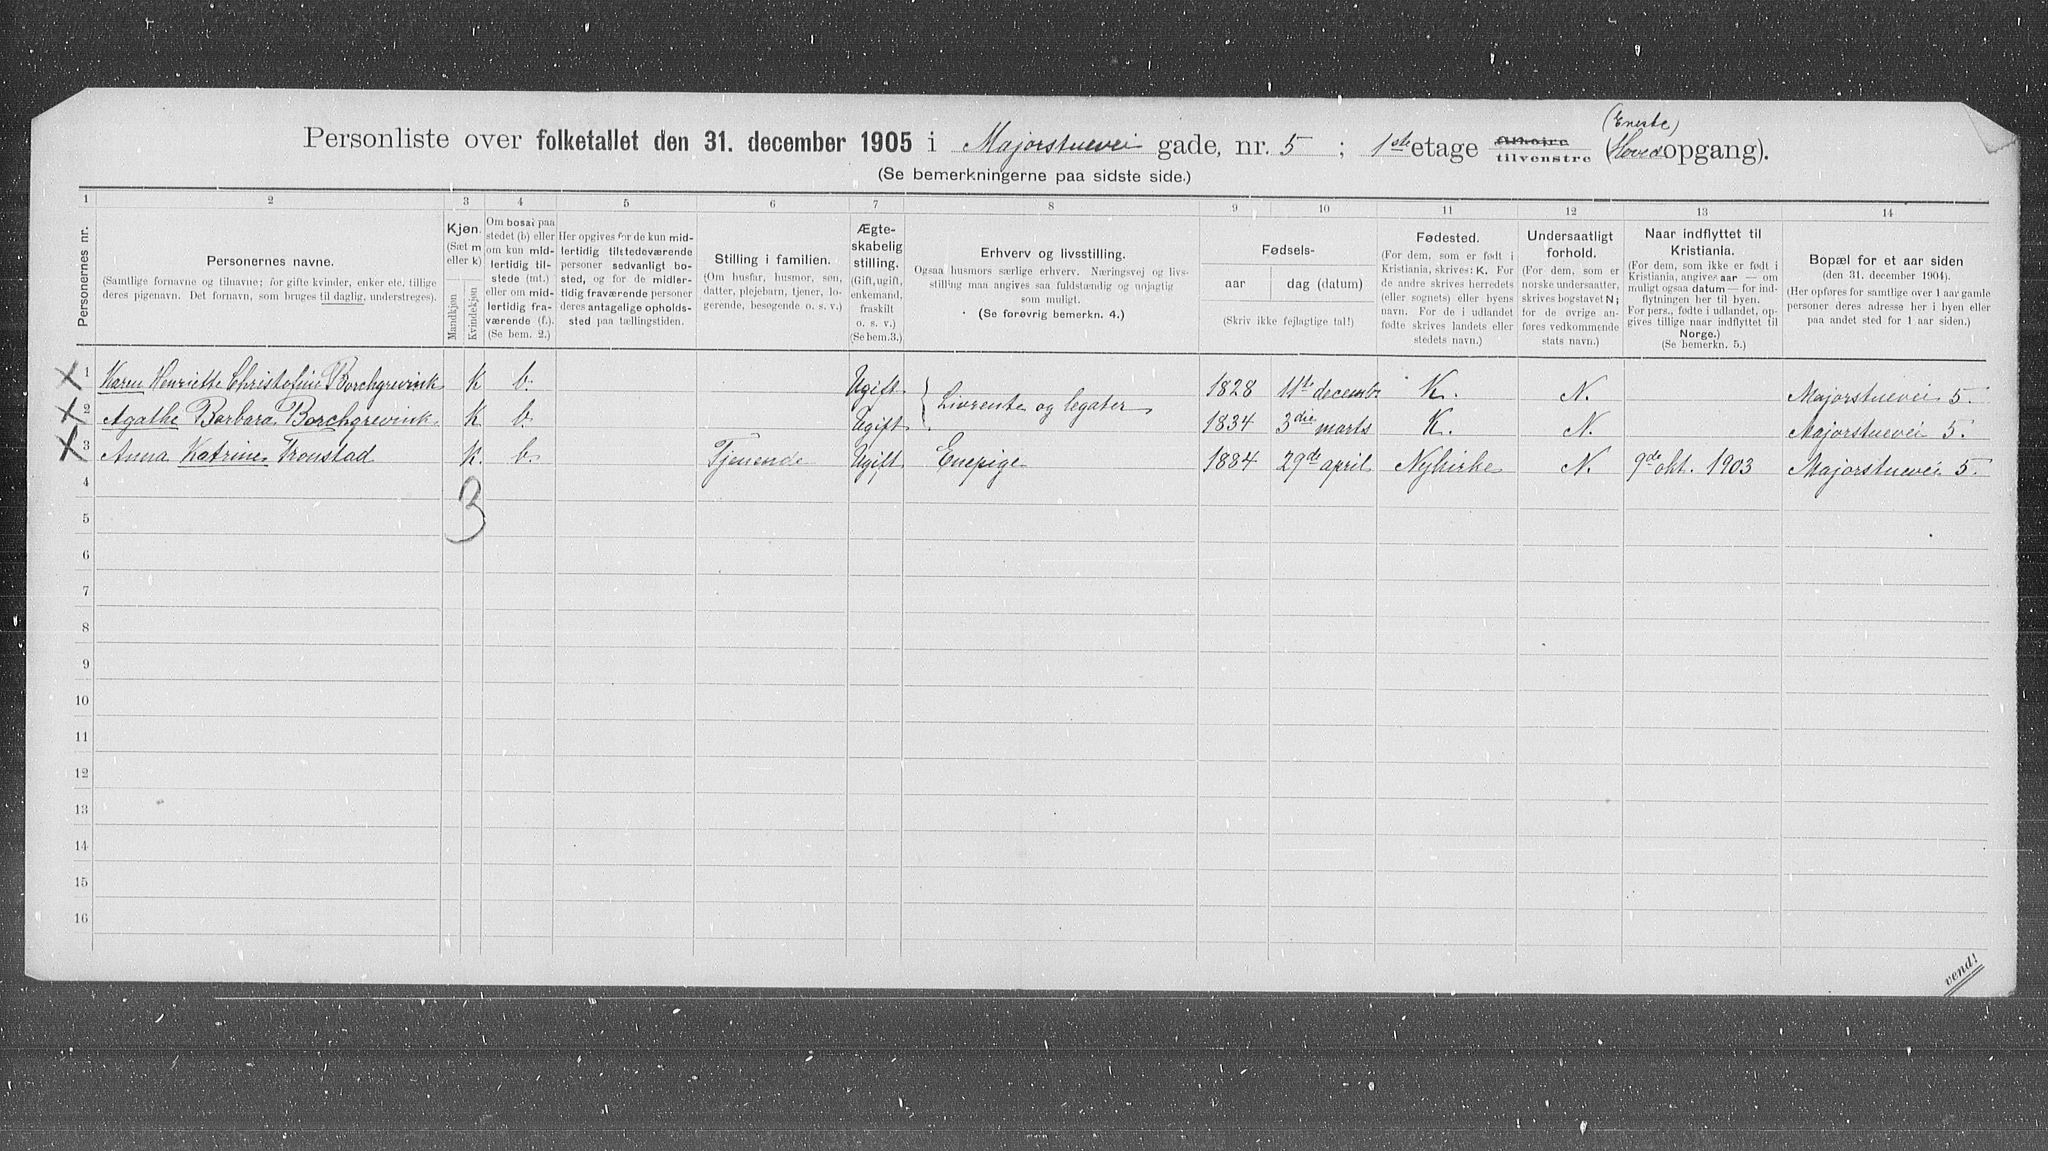 Personliste over folketallet den 31. december 1905 i Majorstuevei gade, nr. 5 ; 1ste etage tilhøire tilvenstre (Eneste) (Hovedopgang).
(Se bemerkningerne paa sidste side.)
1 2 3 4 5 6 7 8 9 10 11 12 13 14
Personernes nr.
Personernes navne.
(Samtlige fornavne og tilnavne; for gifte kvinder, enker etc. tillige
deres pigenavn. Det fornavn, som bruges til daglig, understreges).
Kjøn.
(Sæt m
eller k)
Mandkjøn
Kvindekjøn
Om bosat paa
stedet (b) eller
om kun midlertidig tilstede (mt.)
eller om midlertidig fraværende (f.).
(Se bem. 2.)
Her opgives for de kun midlertidig tilstedeværende
personer sedvanligt bosted, og for de midlertidig fraværende personer
deres antagelige opholdssted paa tællingstiden.
Stilling i familien.
(Om husfar, husmor, søn,
datter, plejebarn, tjener, logerende, besøgende o. s. v.)
Ægteskabelig
stilling.
(Gift, ugift,
enkemand,
fraskilt
o. s. v.)
(Se bem. 3.)
Erhverv og livsstilling.
Ogsaa husmors særlige erhverv. Næringsvej og livsstilling maa angives saa fuldstændig og nøjagtig
som muligt.
(Se forøvrig bemerkn. 4.)
Fødsels-
aar
dag (datum)
(Skriv ikke fejlagtige tal!)
Fødested.
(For dem, som er født i
Kristiania, skrives: K. For
de andre skrives herredets
(eller sognets) eller byens
navn. For de i udlandet
fødte skrives landets eller
stedets navn.)
Undersaatligt
forhold.
(For dem, som er
norske undersaatter,
skrives bogstavet N;
for de øvrige anføres vedkommende
stats navn.)
Naar indflyttet til
Kristiania.
(For dem, som ikke er født i
Kristiania, angives aar — om
muligt ogsaa datum — for indflytningen her til byen.
For pers., fødte i udlandet, opgives tillige naar indflyttet til
Norge.)
(Se bemerkn. 5.)
Bopæl for et aar siden
(den 31. december 1904).
(Her opføres for samtlige over 1 aar gamle
personer deres adresse her i byen eller
paa andet sted for 1 aar siden.)
1 Karen Henriette Christofine Borchgrevink k b. Ugift } Livrente og legater 1828 11te decemb. K. N. Majorstuevei 5.
2 Agathe Barbara Borchgrevink. k. b. Ugift 1834 3die marts K. N. Majorstuevei 5.
3 Anna Katrine Tronstad k. b. Tjenende Ugift Enepige 1884 29de april Nykirke N. 9de okt. 1903 Majorstuevei 5.
4
3
5
6
7
8
9
10
11
12
13
14
15
16
vend!